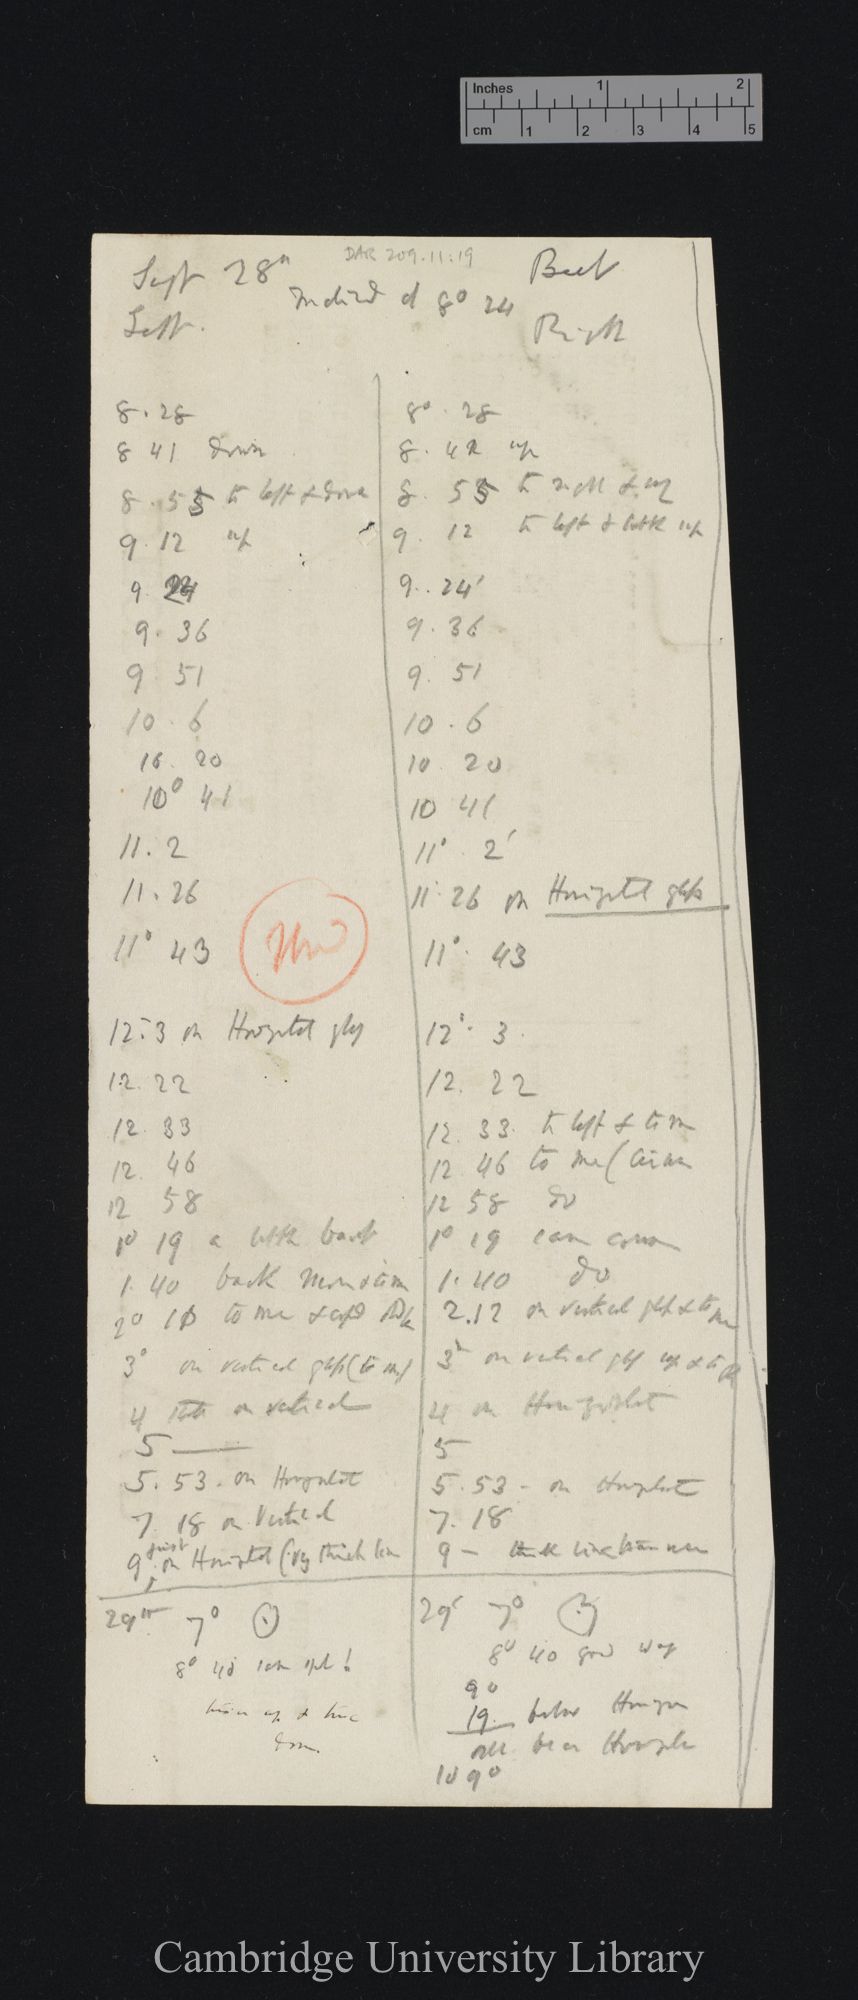 Inches 1 2
cm 1 2 3 4 5
DAR 209.11:19
Sept 28th
Beet
8° 24
Left.
Right
8. 28
8° 28
8 41 down
8. 42 up
8. 55 to left & down
8. 55 to right & up
9. 12 up
9. 12 to left & little up
9. 24
9. 24'
9. 36
9. 36
9. 51
9. 51
10. 6
10. 6
10. 20
10 20
10° 41
10 41
11. 2
11° 2'
11. 26
11. 26 on Horizontal glass
11° 43
11° 43
12. 3 on Horizontal glass
12° 3.
12. 22
12. 22
12 33
12. 33 to left & to me
12. 46
12 46 to me
12 58
12 58 do
1° 19 a little back
1° 19
1. 40 back
1. 40 do
2° 10 to me
2. 12 on vertical glass & to me
3° on vertical glass (to me)
3° on vertical glass up & to
4 on vertical
4 on Horizontal
5
5
5. 53. on Horizontal
5. 53 - on Horizontal
7 18 on Vertical
7. 18
9 first on Horizontal (very thick line
9 - thick line
29th 7°
29' 7°
8° 40
8° 40 good way
9°
up &
19 below
down.
10 9°
Cambridge University Library